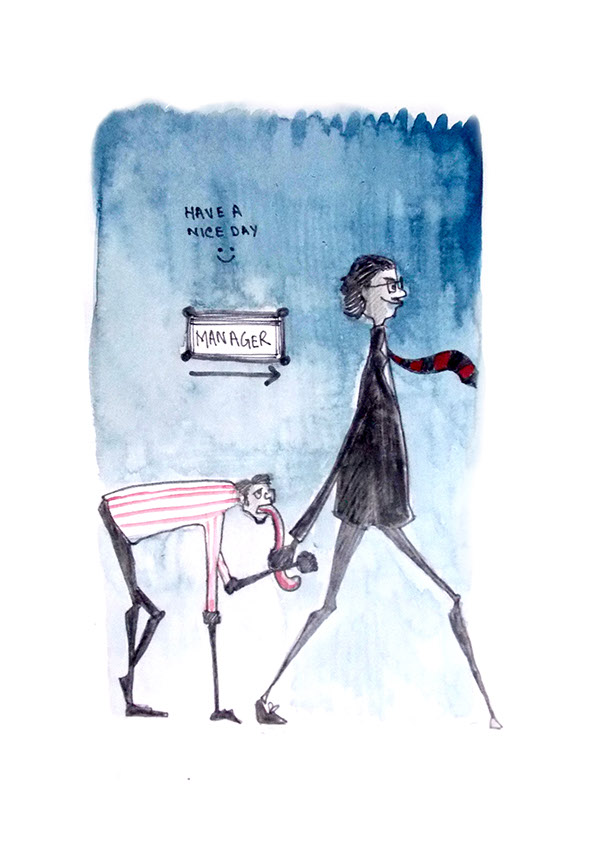 HAVE A
NICE DAY
MANAGER